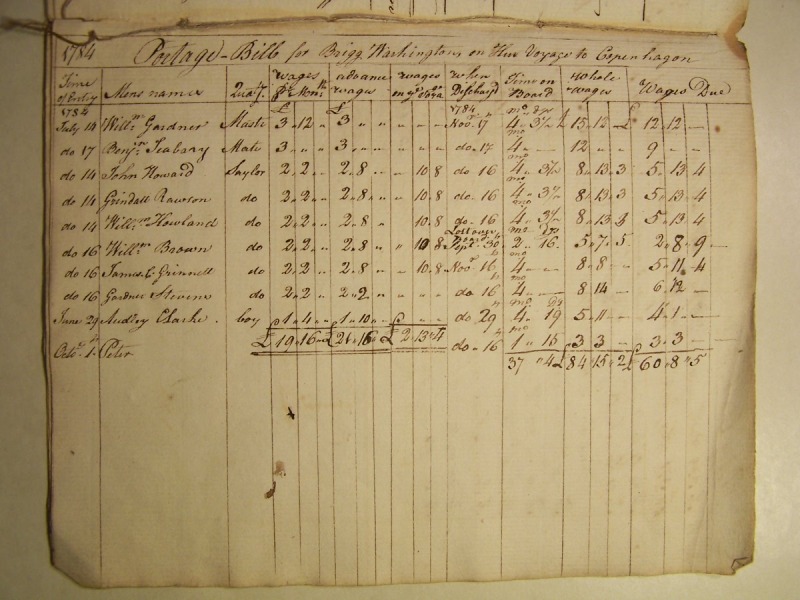 1784 Portage-Bill for Brigg Washington, on Her Voyage to Copenhagon
Time of Entry Mens names Quay. wages pr. Month advance wages wages Time on Board whole wages Wages Due
1784 £ £ 1784 mo dys
July 14 Willm Gardner Mastr 3 " 12 " 3 " " " " " Novr. 17 4 " 3 15 " 12 " £ 12 " 12 —
do 17 Benjn Seabury Mate 3 " " " 3 " " " " " do " 17 4 " — 12 " " — 9 " — —
do 14 John Howard Saylor 2 " 2 " 2 " 8 " " 10 8 do 16 4 " 3 8 " 13 " 3 5 " 13 " 4
do 14 Grindall Rawson do 2 " 2 " 2 " 8 " " " 10 8 do " 16 4 " 3 8 " 13 " 3 5 " 13 " 4
do 14 Willm Howland do 2 " 2 " 2 " 8 " " 10 8 do " 16 4 " 3 8 " 13 " 5 " 13 " 4
do 16 Willm Brown do 2 " 2 " 2 " 8 " " 10 8 Sept. 30 2 " 16 5 " 7 " 5 2 " 8 " 9 —
do 16 James C Grinnell do 2 " 2 " 2 " 8 " " 10 " 8 Novr. 16 4 " — 8 " 8 " — 5 " 11 " 4
do 16 Gardner Stevens do 2 " 2 " 2 " 2 " " " " do " 16 4 " — 8 " 14 — 6 " 12 —
June 29 Audley Clarke . boy 1 " 4 " 1 " 10 " " " " do " 29 4 " 19 5 " 11 — 4 " 1 —
Octr. 1 Peter £ 19 " 16 " £ 21 " 16 " £ 2 " 13 " 4 do " 16 1 " 15 3 " 3 — 3 " 3 —
37 " 4 £ 84 " 15 " 2 £ 60 " 8 " 5